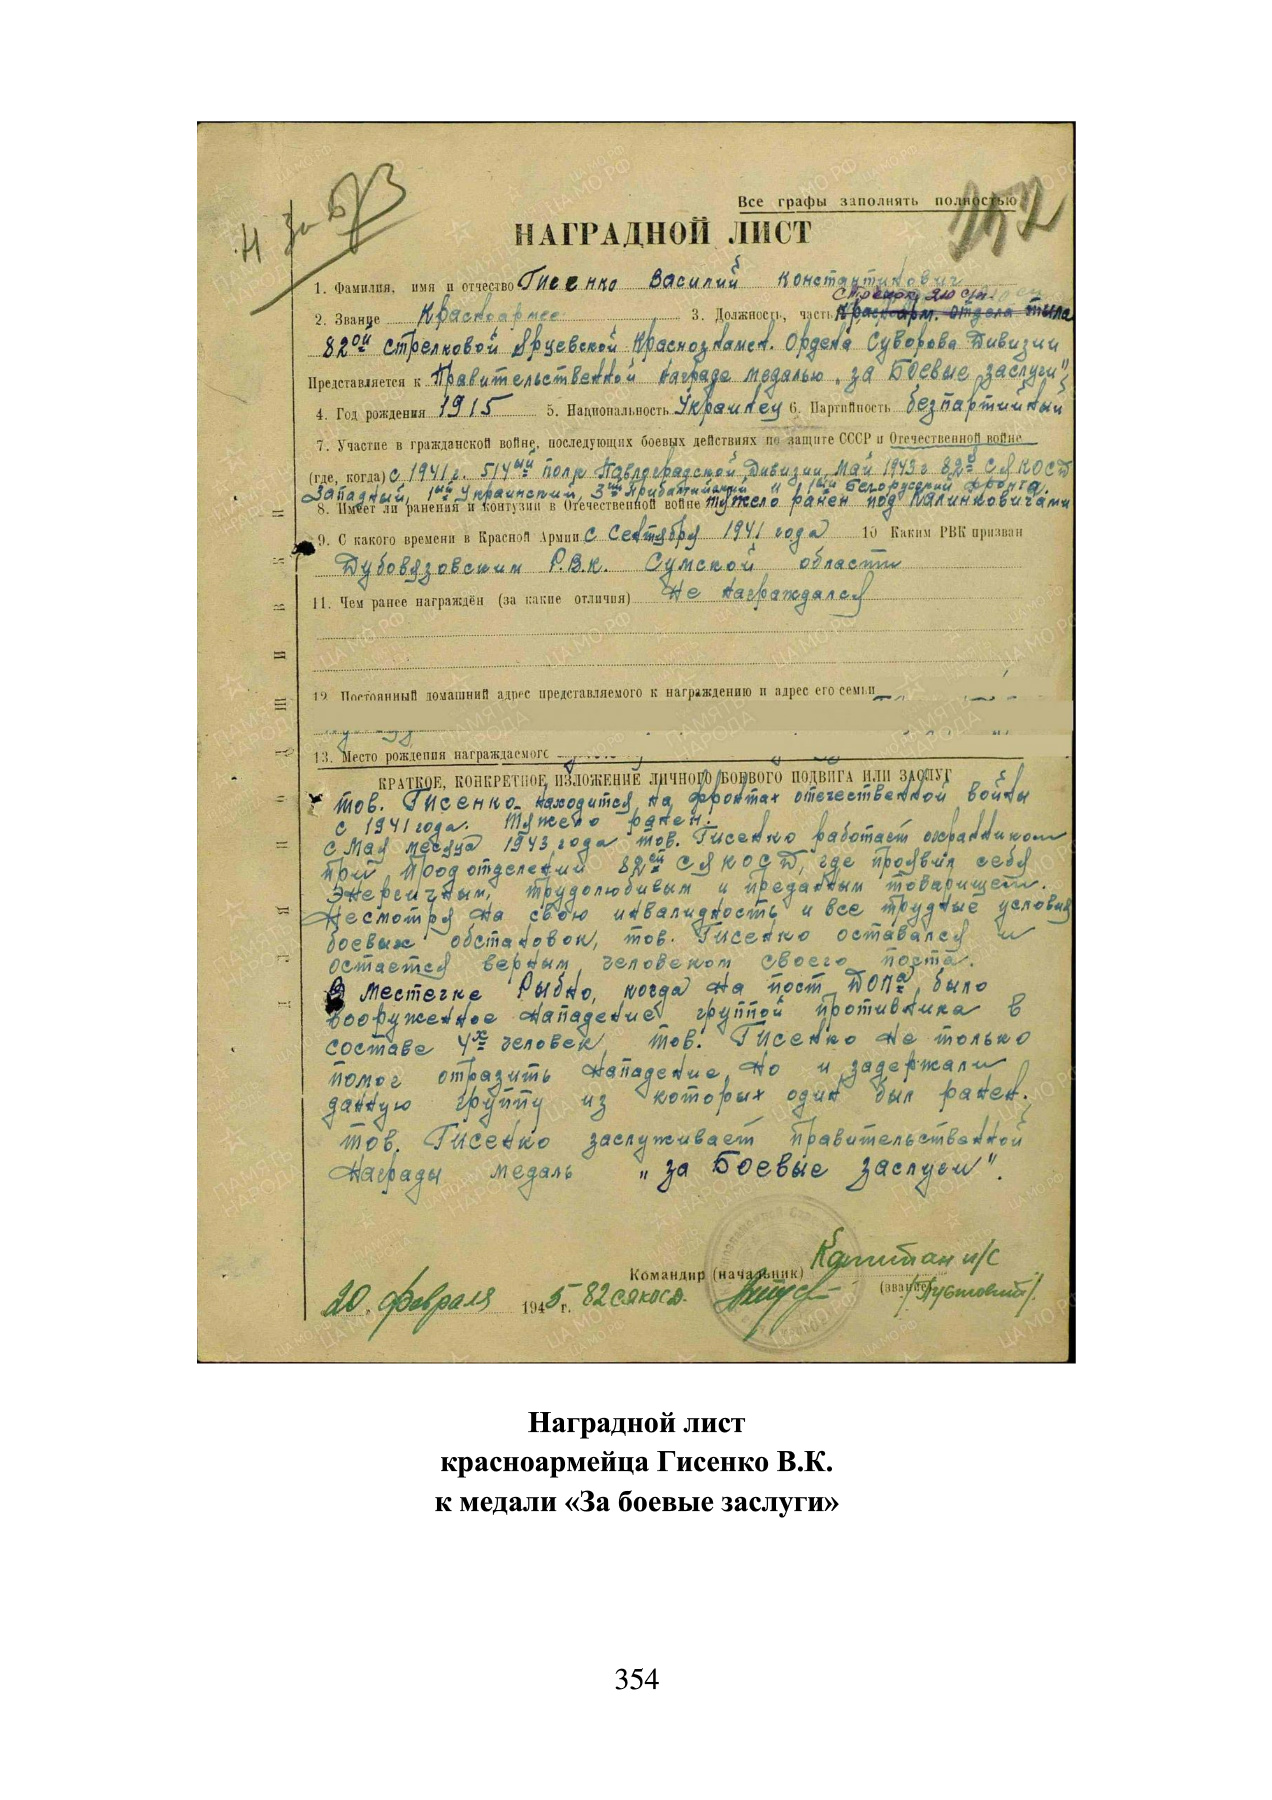 Все графы заполнять полностью
252
Н За БЗ
НАГРАДНОЙ ЛИСТ
1. Фамилия, имя и отчество Гисенко Василий Константинович
стрелок 210 сп.
2. Звание Красноармеец 3. Должность, часть Красноарм. отдела тыла
82ой стрелковой Ярцевской Краснознамен. Ордена Суворова Дивизии
Представляется к Правительственной награде медалью „за Боевые заслуги"
4. Год рождения 1915 5. Национальность Украинец 6. Партийность безпартийный
7. Участие в гражданской войне, последующих боевых действиях по защите СССР и Отечественной войне
(где, когда) с 1941 г. 514ый полк Павлоградской Дивизии, Май 1943 г 82й СЯКОСД
Западный, 1ый Украинский, 3ий Прибалтийский и 1ый Белорусский фронта.
8. Имеет ли ранения и контузии в Отечественной войне тяжело ранен под Калинковичами
9. С какого времени в Красной Армии с Сентября 1941 года 10 Каким РВК призван
Дубовязовским Р.В.К. Сумской области
11. Чем ранее награждён (за какие отличия) Не награждался
12. Постоянный домашний адрес представляемого к награждению и адрес его семьи
13. Место рождения награждаемого
КРАТКОЕ, КОНКРЕТНОЕ ИЗЛОЖЕНИЕ ЛИЧНОГО БОЕВОГО ПОДВИГА ИЛИ ЗАСЛУГ
тов. Гисенко находится на фронтах отечественной войны
с 1941 года. Тяжело ранен.
с Мая месяца 1943 года тов. Гисенко работает охранником
при Прод отделении 82ой СЯКОСД, где проявил себя
Энергичным, трудолюбивым и преданным товарищем.
Несмотря на свою инвалидность и все трудные условия
боевых обстановок, тов. Гисенко оставался и
остается верным человеком своего поста.
В местечке Рыбно, когда на пост ДОПа было
вооруженное нападение группой противника в
составе 4х человек тов. Гисенко не только
помог отразить нападение, но и задержали
данную группу из которых один был ранен.
тов. Гисенко заслуживает правительственной
награды медаль „за Боевые заслуги".
Капитан и/с
Командир (начальник)
(звание) /Пустовит/.
20 февраля 1945 г. 82 сякосд.
ПАМЯТЬ НАРОДА
ЦАМО.РФ
Наградной лист
красноармейца Гисенко В.К.
к медали «За боевые заслуги»
354